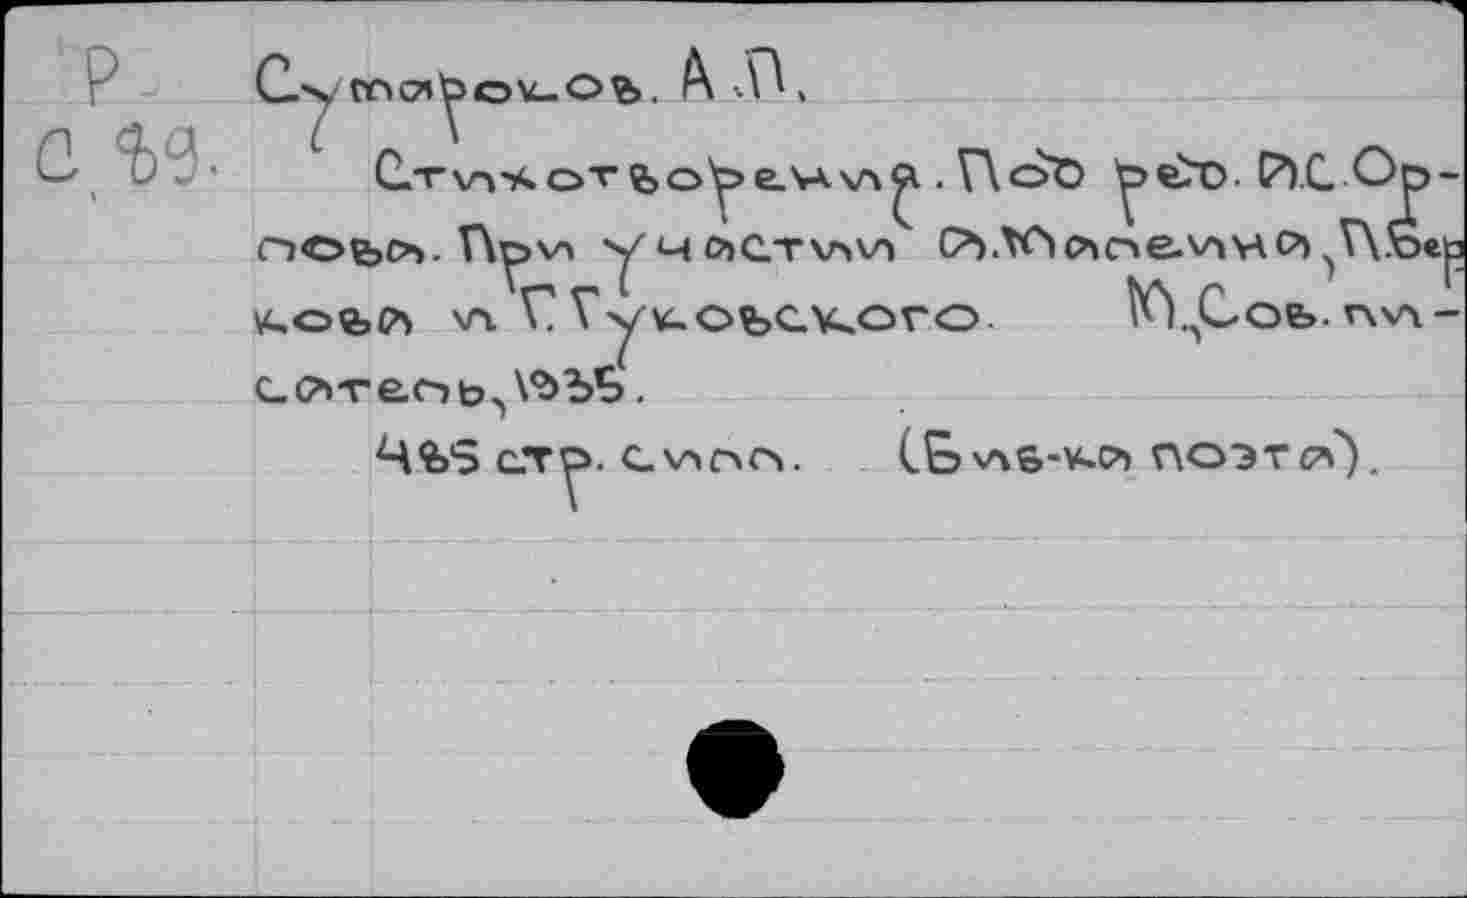 Р
С 89.
Сумароков. А.П.
Стихотворения. Под ред. А.С. Ор-
лова. При участии А.Малеина, П.Бер
кова и Г.Гуковского. М., Сов. пи-
сатель, 1935.
485 стр. с илл. (Б-ка поэта).